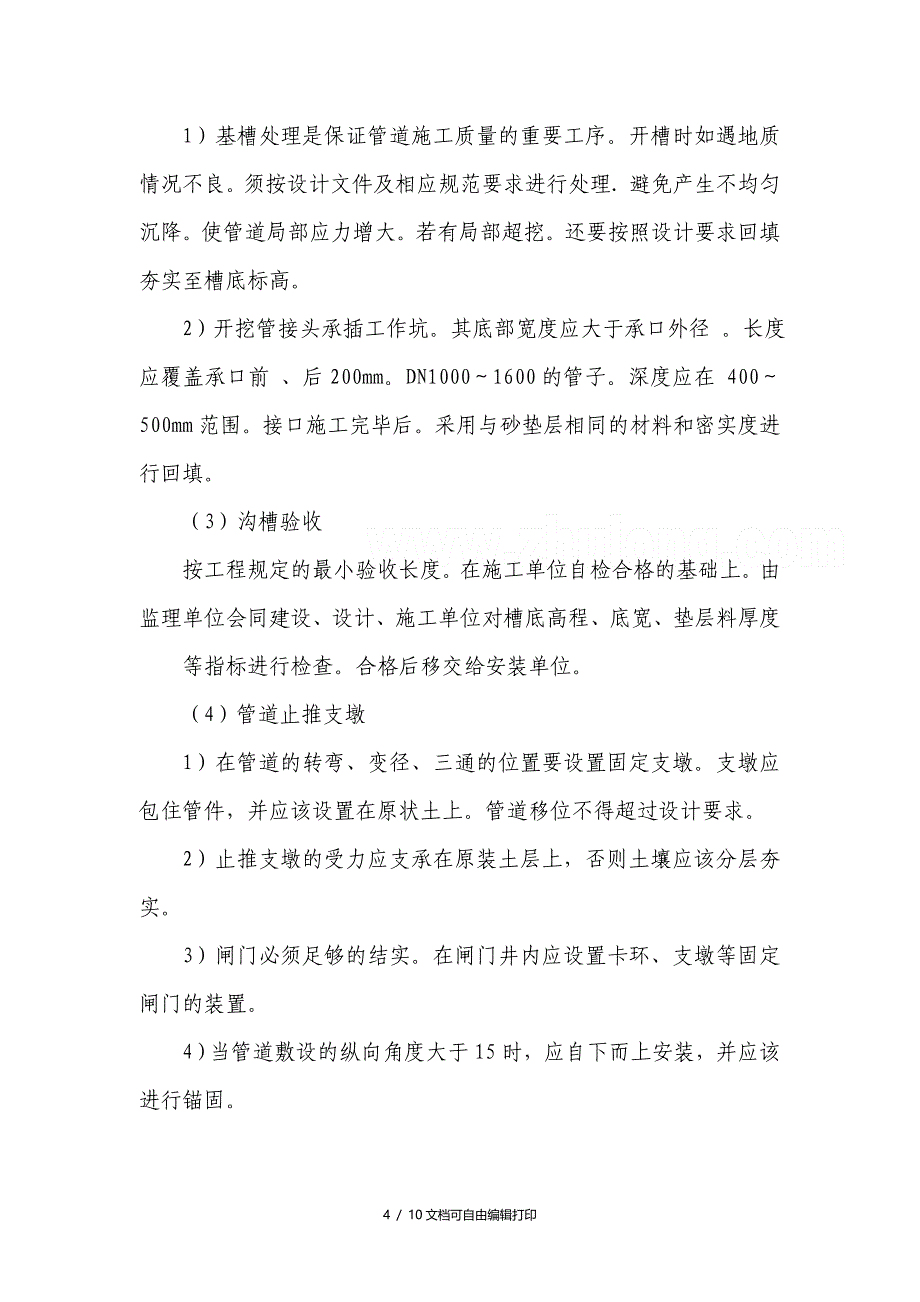 1)基槽处理是保证管道施工质量的重要工序。开槽时如遇地质
情况不良。须按设计文件及相应规范要求进行处理．避免产生不均匀
沉降。使管道局部应力增大。若有局部超挖。还要按照设计要求回填
夯实至槽底标高。
2)开挖管接头承插工作坑。其底部宽度应大于承口外径 。长度
应覆盖承口前 、后200mm。DN1000～1600的管子。深度应在 400～
500mm范围。接口施工完毕后。采用与砂垫层相同的材料和密实度进
行回填。
（3）沟槽验收
www.zhulong.com
按工程规定的最小验收长度。在施工单位自检合格的基础上。由
监理单位会同建设、设计、施工单位对槽底高程、底宽、垫层料厚度
等指标进行检查。合格后移交给安装单位。
（4）管道止推支墩
1)在管道的转弯、变径、三通的位置要设置固定支墩。支墩应
包住管件，并应该设置在原状土上。管道移位不得超过设计要求。
2)止推支墩的受力应支承在原装土层上，否则土壤应该分层夯
实。
3)闸门必须足够的结实。在闸门井内应设置卡环、支墩等固定
闸门的装置。
4)当管道敷设的纵向角度大于15时，应自下而上安装，并应该
进行锚固。
4 / 10文档可自由编辑打印